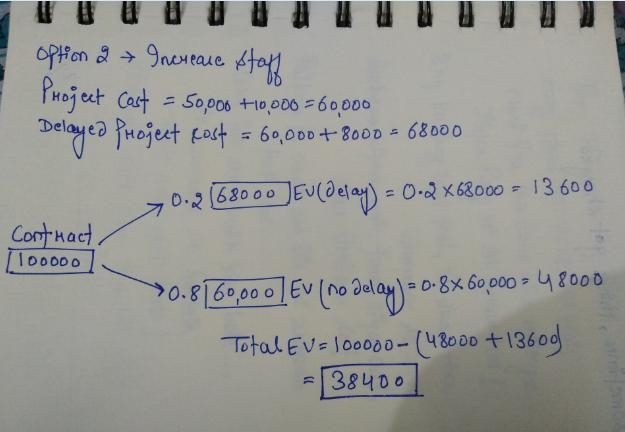 Option 2 → Increase Staff
Project Cost = 50,000 + 10,000 = 60,000
Delayed Project Cost = 60,000 + 8000 = 68000
0.2 68000 EV(delay) = 0.2 × 68000 = 13600
Contract
100000
0.8 60,000 EV(no delay) = 0.8 × 60,000 = 48000
Total EV = 100000 - (48000 + 13600)
= 38400